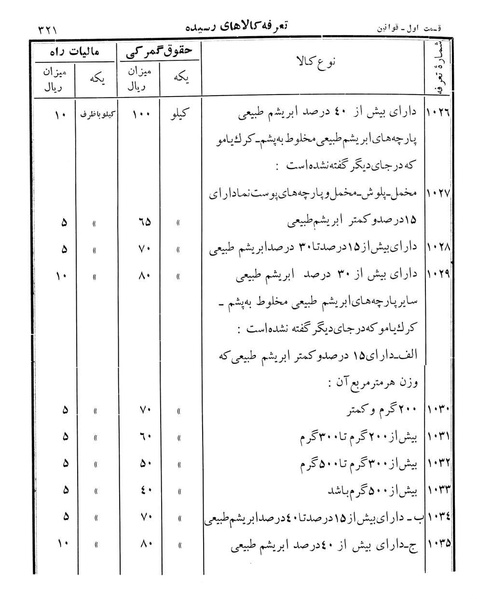 قسمت اول ـ قوانین تعرفه کالاهای رسیده ۳۲۱
شمارۀ تعرفه نوع کالا حقوق گمرکی مالیات راه
یکه میزان ریال یکه میزان ریال
۱۰۲۶ دارای بیش از ۴۰ درصد ابریشم طبیعی کیلو ۱۰۰ کیلو باظرف ۱۰
پارچه‌های ابریشم طبیعی مخلوط به پشم ـ کرک یا مو
که در جای دیگر گفته نشده است :
۱۰۲۷ مخمل ـ پلوش ـ مخمل و پارچه‌های پوست نما دارای
۱۵ درصد و کمتر ابریشم طبیعی » ۶۵ » ۵
۱۰۲۸ دارای بیش از ۱۵ درصد تا ۳۰ درصد ابریشم طبیعی » ۷۰ » ۵
۱۰۲۹ دارای بیش از ۳۰ درصد ابریشم طبیعی » ۸۰ » ۱۰
سایر پارچه‌های ابریشم طبیعی مخلوط به پشم ـ
کرک یا مو که در جای دیگر گفته نشده است :
الف ـ دارای ۱۵ درصد و کمتر ابریشم طبیعی که
وزن هر متر مربع آن :
۱۰۳۰ ۲۰۰ گرم و کمتر » ۷۰ » ۵
۱۰۳۱ بیش از ۲۰۰ گرم تا ۳۰۰ گرم » ۶۰ » ۵
۱۰۳۲ بیش از ۳۰۰ گرم تا ۵۰۰ گرم » ۵۰ » ۵
۱۰۳۳ بیش از ۵۰۰ گرم باشد » ۴۰ » ۵
۱۰۳۴ ب ـ دارای بیش از ۱۵ درصد تا ۴۰ درصد ابریشم طبیعی » ۷۰ » ۵
۱۰۳۵ ج ـ دارای بیش از ۴۰ درصد ابریشم طبیعی » ۸۰ » ۱۰